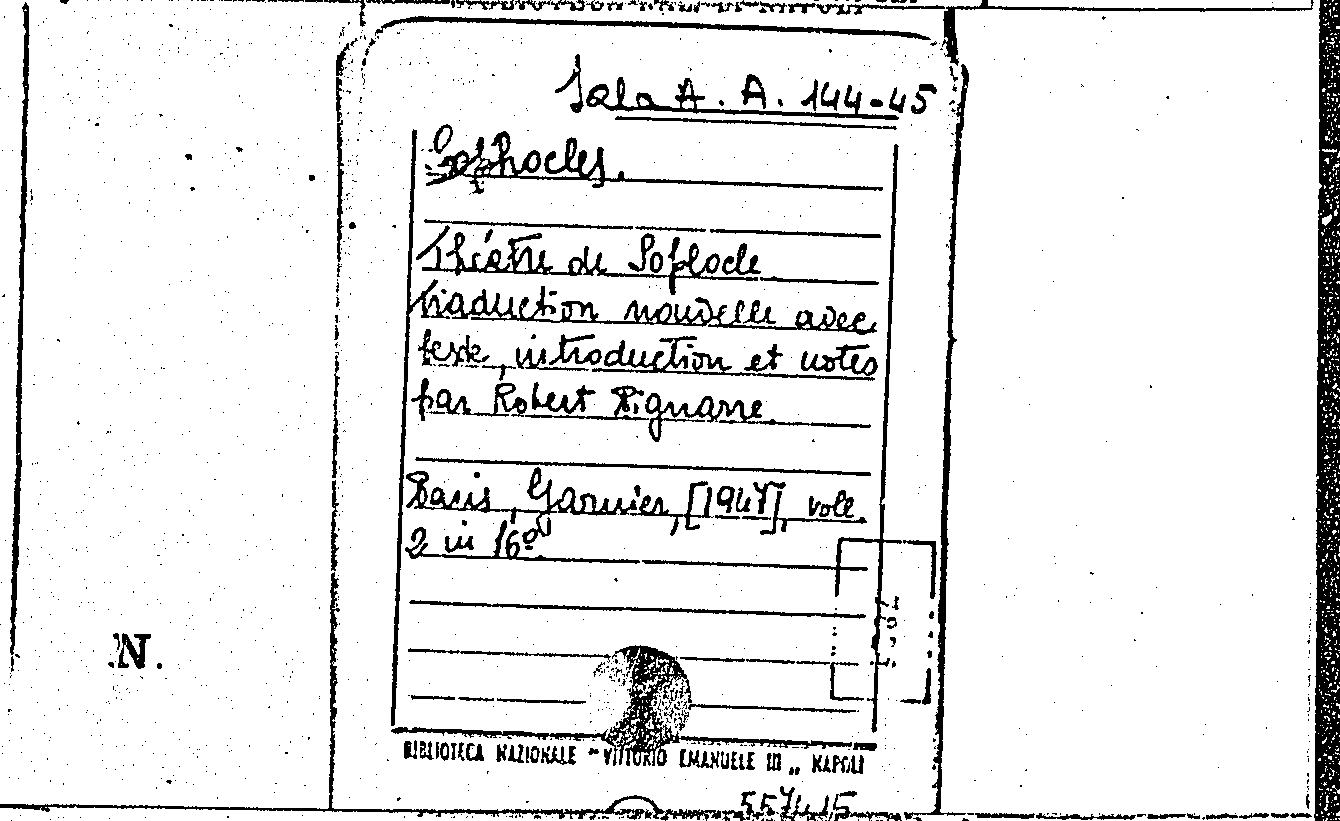 Sala A. A. 144-45
Sophocles.
Théâtre de Sophocle
traduction nouvelle avec
texte, introduction et notes
par Robert Pignarre.
Paris, Garnier, [1947], voll.
2 in 16º
N.
BIBLIOTECA NAZIONALE "VITTORIO EMANUELE III" NAPOLI